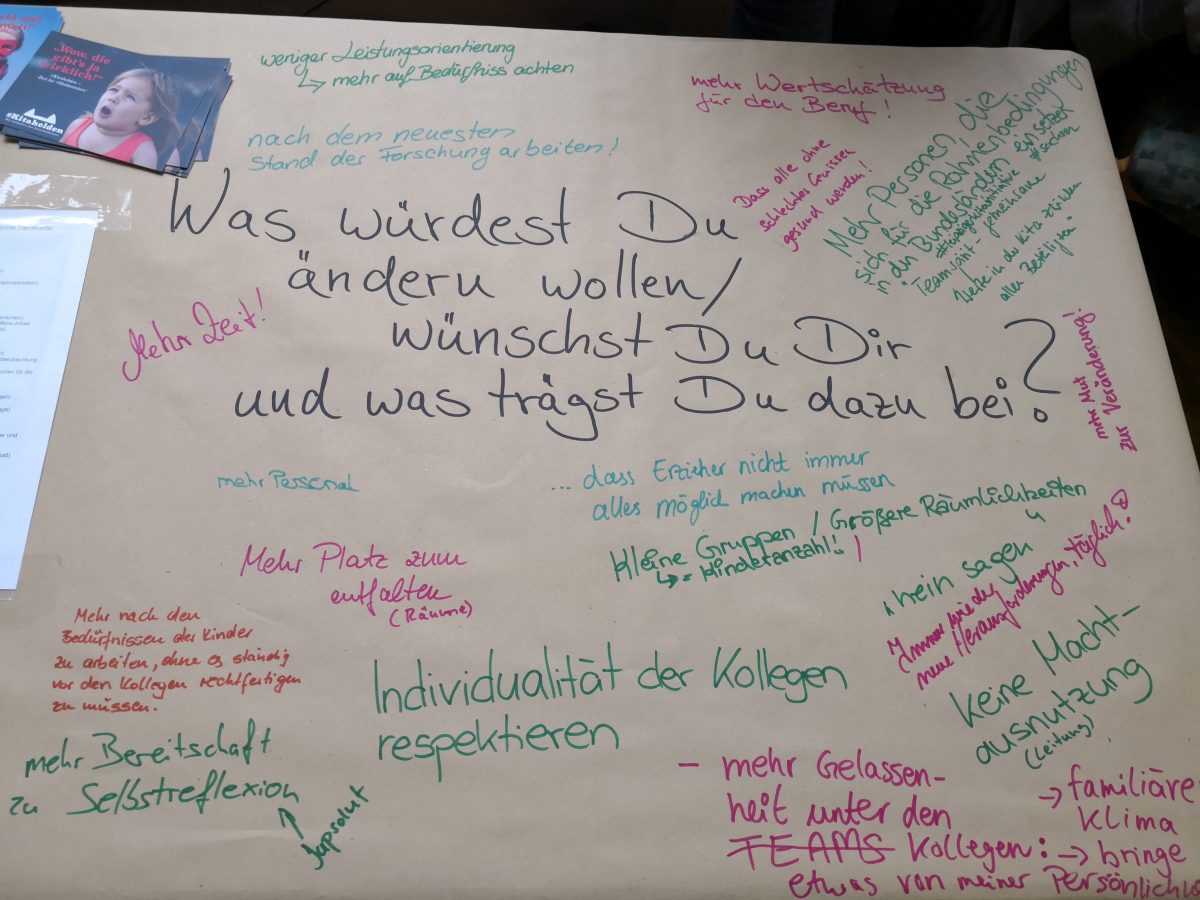 "Wow, die
gibt's ja
wirklich!"
#Kitahelden
weniger Leistungsorientierung
↳ mehr auf Bedürfniss achten
nach dem neuesten
Stand der Forschung arbeiten!
mehr Wertschätzung
für den Beruf!
Dass alle ohne
schlechtes Gewissen
gesund werden!
Mehr Personen, die
sich für die Rahmenbedingungen
in den Bundesländern einsetzen
Teamspirit - gemeinsame
Werte in der Kita stärken
aller Beteiligten
Was würdest Du
ändern wollen/
wünschst Du Dir
und was trägst Du dazu bei?
Mehr Zeit!
mehr Mut
zur Veränderung!
mehr Personal
... dass Erzieher nicht immer
alles möglich machen müssen
Kleine Gruppen / Größere Räumlichkeiten
↳ = Kinderanzahl!!
Mehr Platz zum
entfalten
(Räume)
nein sagen
Immer wieder
neue Herausforderungen, täglich!
Mehr nach den
Bedürfnissen der Kinder
zu arbeiten, ohne es ständig
vor den Kollegen rechtfertigen
zu müssen.
Individualität der Kollegen
respektieren
keine Macht-
ausnutzung
(Leitung)
mehr Bereitschaft
zu Selbstreflexion
↑
Japsolut
- mehr Gelassen-
heit unter den
TEAMS Kollegen:
→ familiäre
Klima
→ bringe
etwas von meiner Persönlich